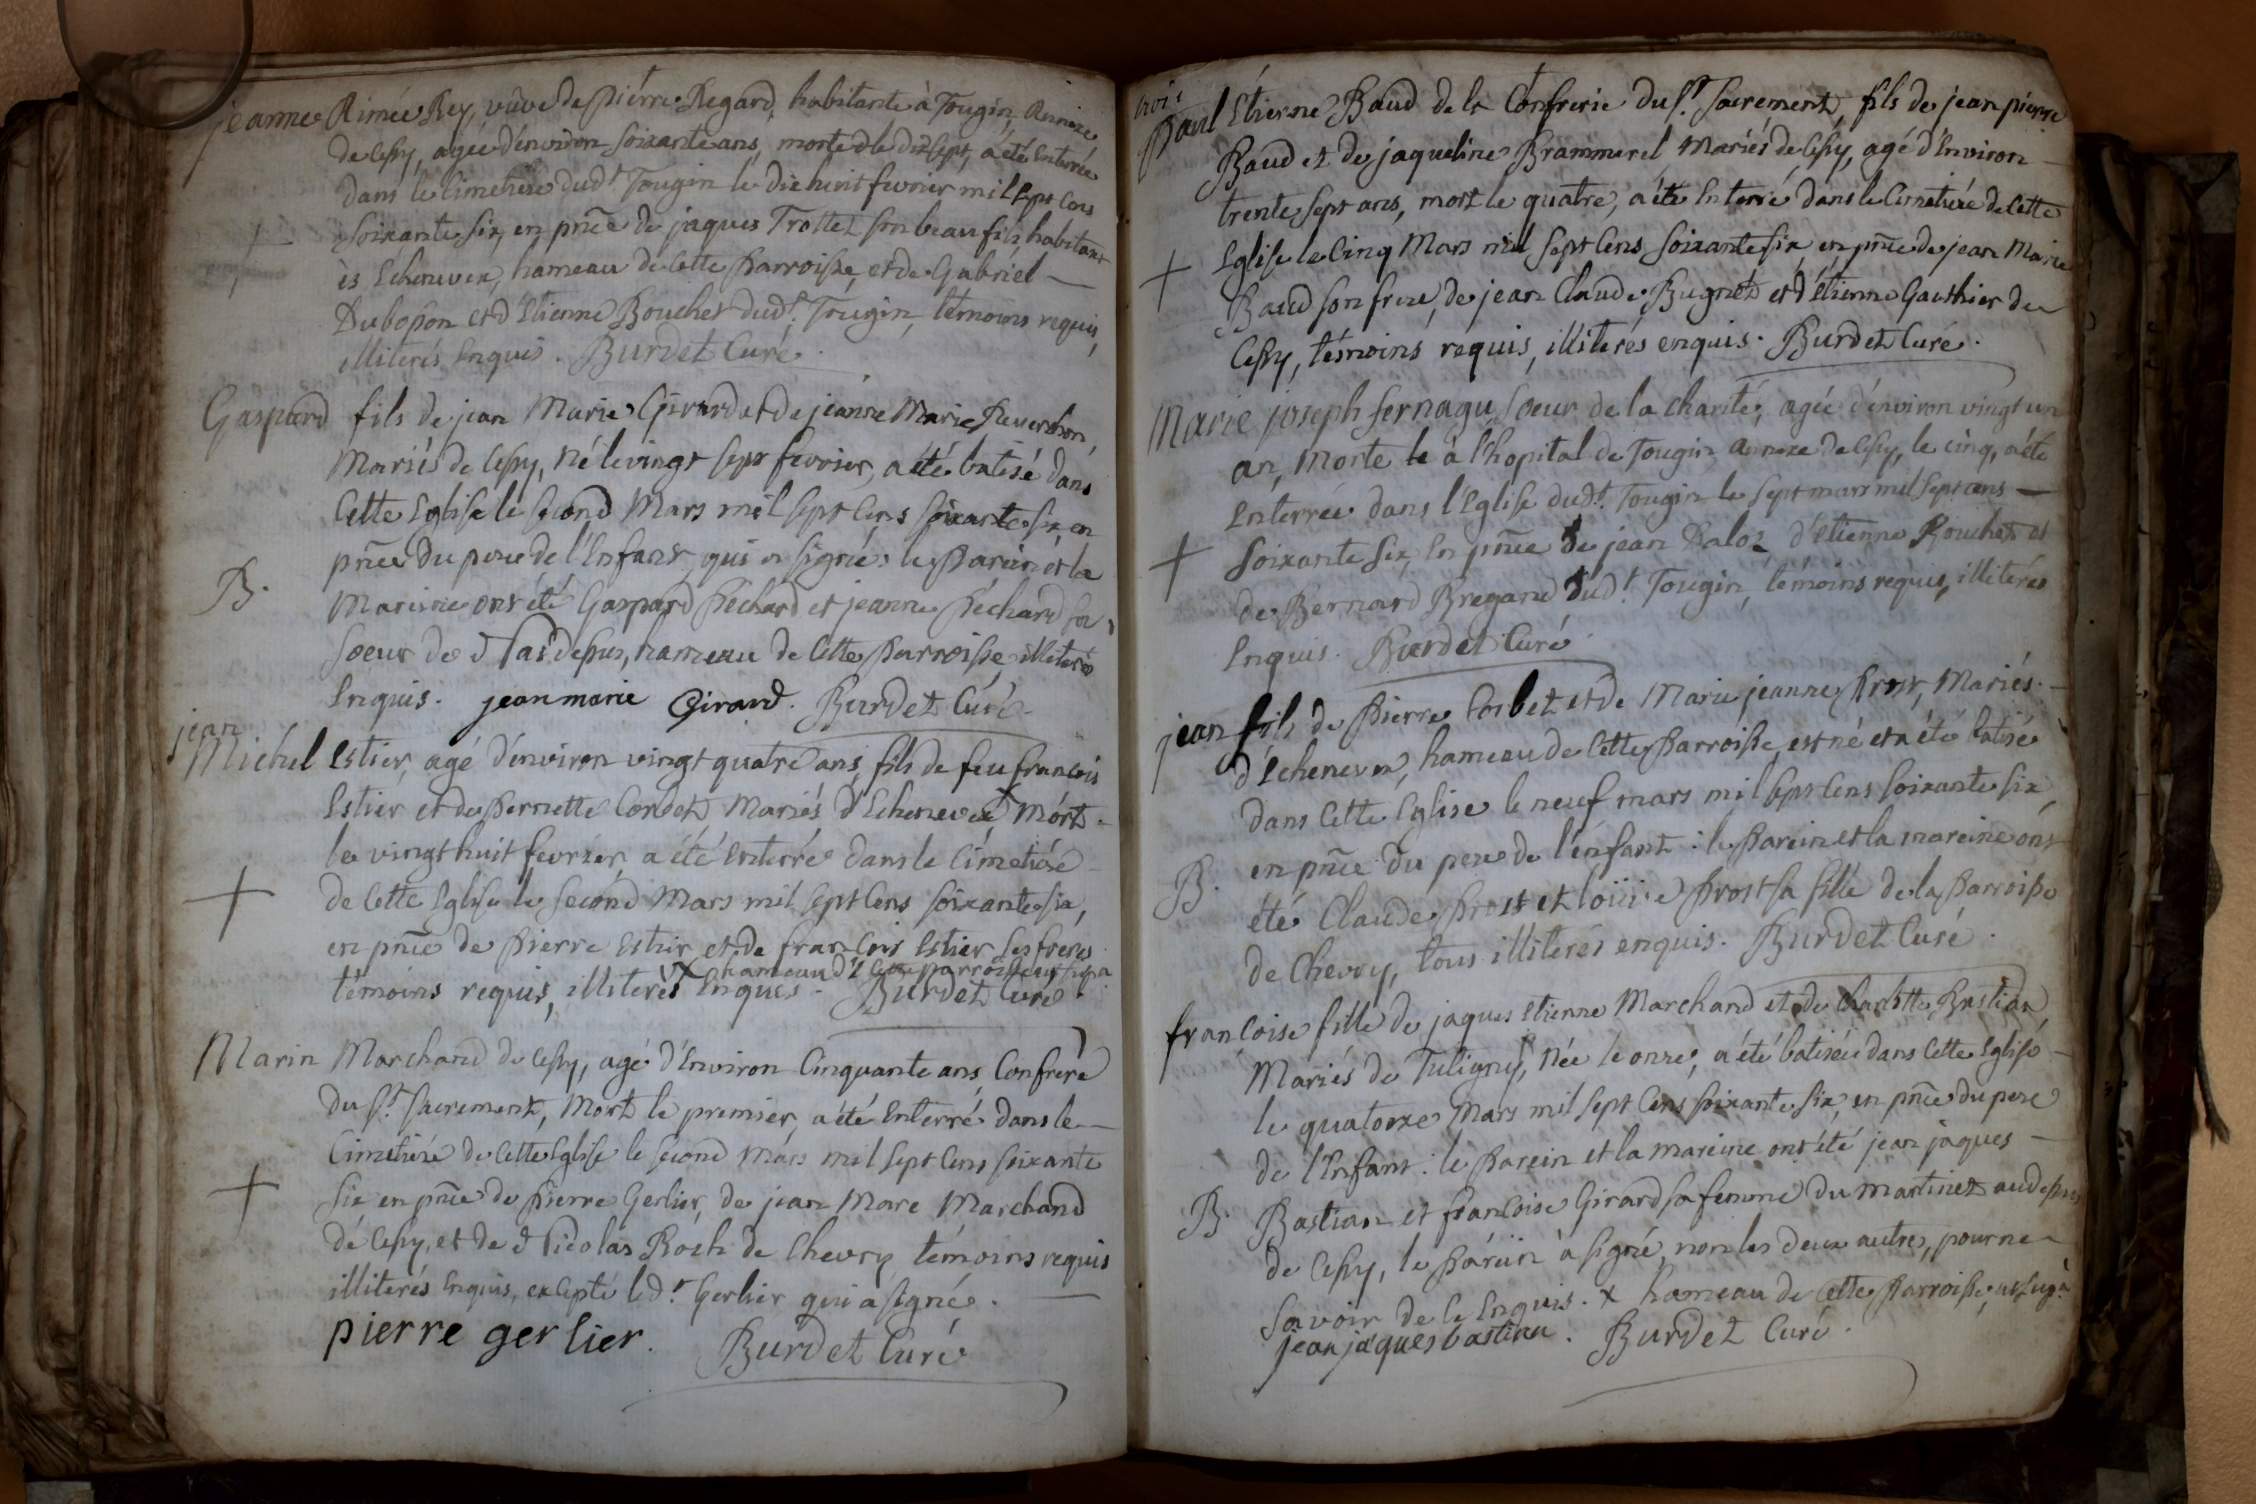 jeanne Aimée Rey, vûve de Piérre Regard, habitante à Tougin, Annexe
de Cessy, agée d'environ soixante ans, morte le dix sept, a été Enterrée
dans le Cimetiere dud.t Tougin le dix huit fevrier mil sept Cens
soixante six, en pñce de jaques Trottet son beau fils, habitant
ès Echenevex, hameau de Cette Parroisse, et de Gabriel
Duboson et d'Etienne Bouchet dud.t Tougin, témoins requis,
illiterés Enquis. Burdet Curé.
Gaspard fils de jean Marie Girard et de jeanne Marie Reverchon,
Mariés de Cessy, né le vingt sept fevrier, a été batisé dans
Cette Eglise le second Mars mil sept Cens soixante six, en
pñce du pere de l'Enfant, qui a signé: le Parein et la
B.
Mareine ont été Gaspard Péchard et jeanne Péchard sa
soeur de dessus, hameau de Cette Parroisse, illiterés
Enquis. jean marie Girard. Burdet Curé.
jean
Michel Estier, agé d'environ vingt quatre ans, fils de feu francois
Estier et de Pernette Corbet Mariés d'Echenevex x Mort
le vingt huit fevrier, a été Enterré dans le Cimetiére
de Cette Eglise le second Mars mil sept Cens soixante six,
en pñce de Pierre Estier et de francois Estier ses freres
x hameau de Cette parroisse
témoins requis, illiterés Enquis. Burdet Curé.
Marin Marchand de Cessy, agé d'Environ Cinquante ans, Confrére
du S.t Sacrement, Mort le premier, a été Enterré dans le
Cimetiére de Cette Eglise le second Mars mil sept Cens soixante
six en pñce de Pierre Gerlier, de jean Marc Marchand
de Cessy, et de Nicolas Roch de Chevry témoins requis
illiterés Enquis, excepté led.t Gerlier qui a signé.
pierre gerlier. Burdet Curé
trois
Paul Etienne Baud de la Confrerie du S.t Sacrement, fils de jean pierre
Baud et de jaqueline Brammerel Mariés de Cessy, agé d'Environ
trente sept ans, mort le quatre, a été Enterré dans le Cimetiére de Cette
Eglise le Cinq Mars mil sept Cens soixante six, en pñce de jean Marie
Baud son frere, de jean Claude Bugnet et d'Etienne Gauthier de
Cessy, témoins requis, illiterés enquis. Burdet Curé.
Marie joseph fernagu, Soeur de la charité, agée d'environ vingt un
an, Morte le à l'hopital de Tougin Annexe de Cessy, le cinq, a été
Enterrée dans l'Eglise dud.t Tougin le sept mars mil sept cens
soixante six, En pñce de jean Daloz d'Etienne Bouchet et
de Bernard Bregand dud.t Tougin, témoins requis, illiterés
Enquis. Burdet Curé
jean fils de Pierre Corbet et de Marie jeanne Prost, Mariés
d'Echenevex, hameau de Cette Parroisse, est né et a été batisé
dans Cette Eglise le neuf mars mil sept Cens soixante six,
en pñce du pere de l'énfant: le Parein et la mareine ont
B.
été Claude Prost et Prost sa fille de la Parroisse
de Chevry, tous illiterés enquis. Burdet Curé.
francoise fille de jaques Etienne Marchand et de Charlotte Bastian,
Mariés de Tutigny, x Née le onze, a été batisée dans Cette Eglise
le quatorze Mars mil sept Cens soixante six, en pñce du pere
de l'Enfant: le Parein et la mareine ont été jean jaques
B.
Bastian et francoise Girard sa femme du martinet au dessus
de Cessy, le Parein a signé, non les deux autres, pour ne
savoir de ce Enquis. x hameau de Cette Parroisse,
jean jaques bastian. Burdet Curé.